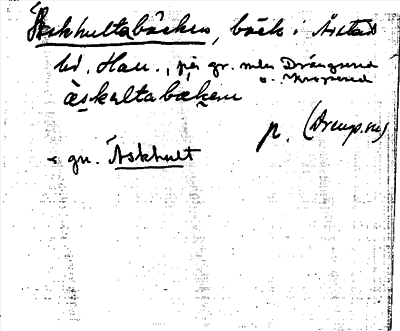 Äskhultabäcken, bäck i Årstad
hd. Hall., på gr. mln Drängsered
o. Krogsered
äskultabäken
p. (Drengs. sn)
< gn. Äskhult